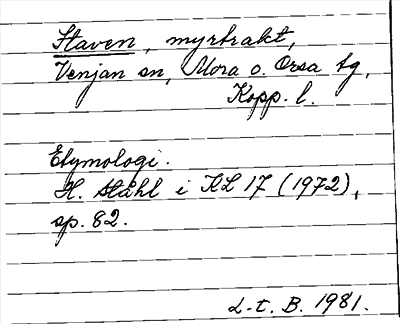 Staven, myrtrakt,
Venjan sn, Mora o. Orsa tg,
Kopp. l.
Etymologi.
H. Ståhl i KL 17 (1972),
sp. 82.
L-t. B. 1981.